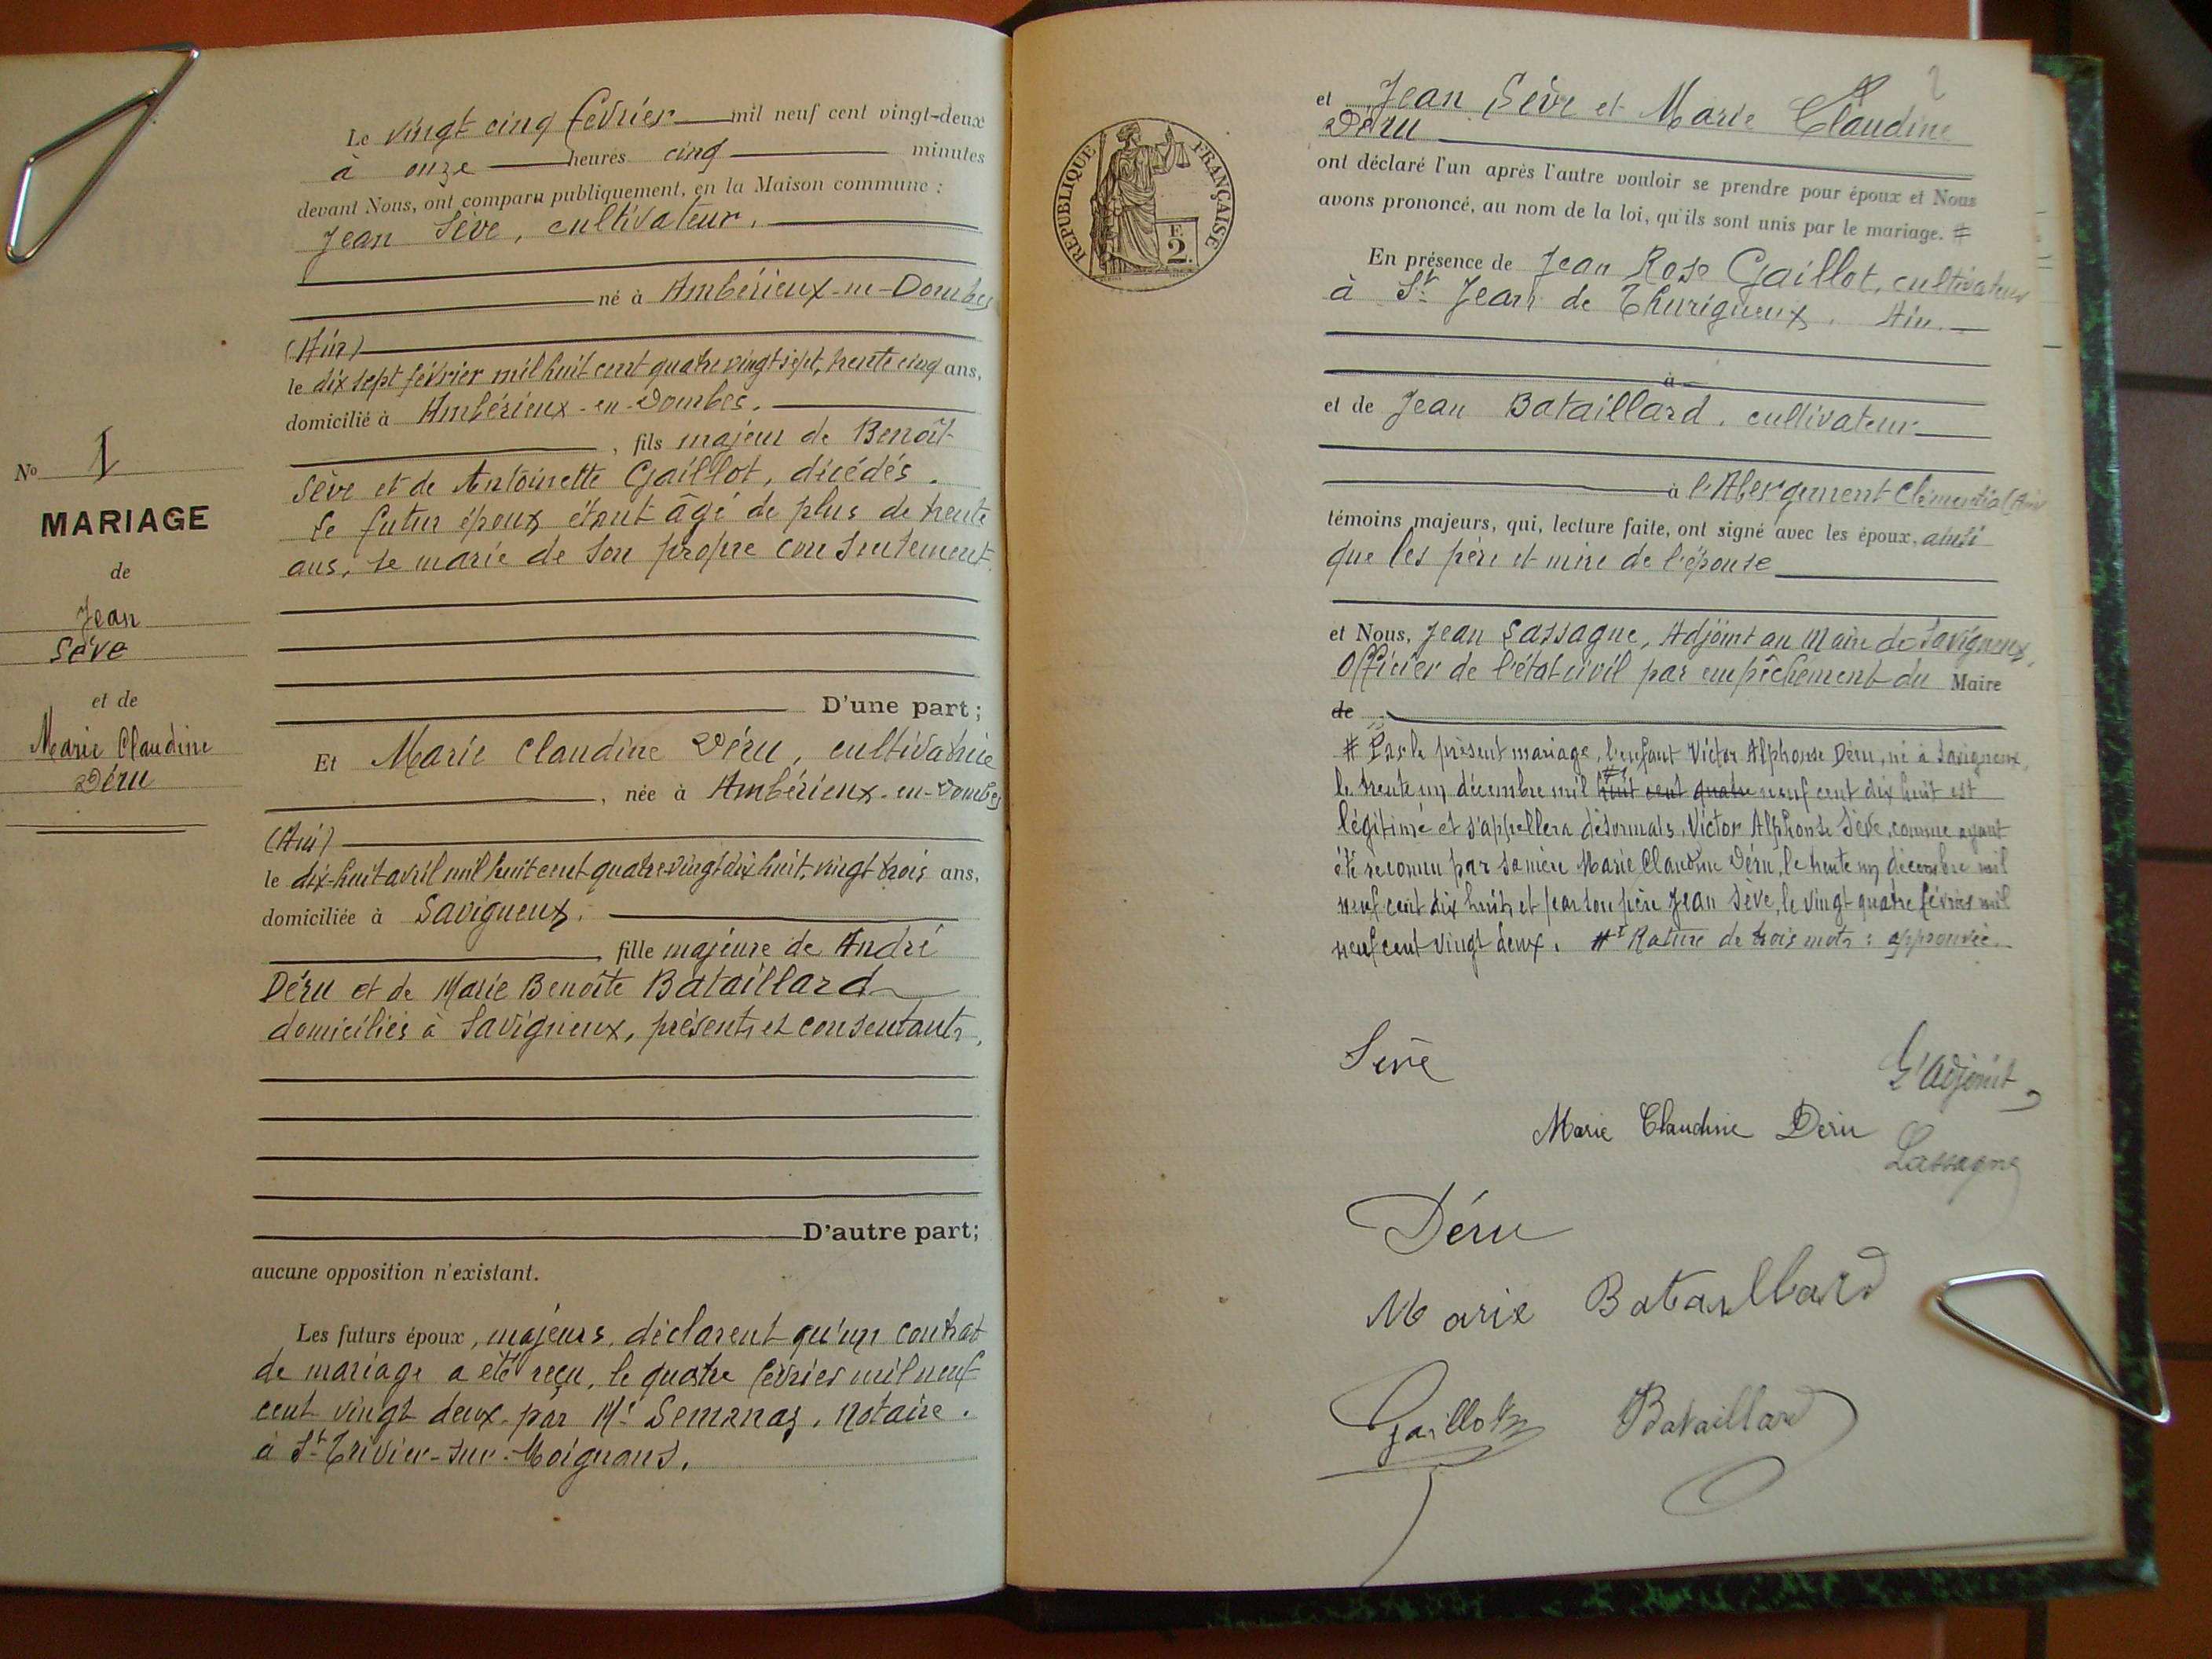 No 1
MARIAGE
de
Jean
Sève
et de
Marie Claudine
Déru
Le vingt cinq février mil neuf cent vingt-deux
à onze heures cinq minutes
devant Nous, ont comparu publiquement, en la Maison commune :
Jean Sève, cultivateur,
né à Ambérieux-en-Dombes
(Ain)
le dix sept février mil huit cent quatre vingt sept, trente cinq ans,
domicilié à Ambérieux-en-Dombes.
, fils majeur de Benoît
Sève et de Antoinette Gaillot, décédés.
Le futur époux étant âgé de plus de trente
ans, se marie de son propre consentement.
D'une part ;
Et Marie Claudine Déru, cultivatrice
, née à Ambérieux-en-Dombes
(Ain)
le dix-huit avril mil huit cent quatre-vingt dix huit, vingt trois ans,
domiciliée à Savigneux.
, fille majeure de André
Déru et de Marie Benoîte Bataillard
domiciliés à Savigneux, présents et consentants,
D'autre part ;
aucune opposition n'existant.
Les futurs époux, majeurs, déclarent qu'un contrat
de mariage a été reçu, le quatre février mil neuf
cent vingt deux par Me Semanas, notaire.
à St Trivier-sur-Moignans.
2
REPUBLIQUE FRANÇAISE
F.
2.
et Jean Sève et Marie Claudine
Déru
ont déclaré l'un après l'autre vouloir se prendre pour époux et Nous
avons prononcé, au nom de la loi, qu'ils sont unis par le mariage. #
En présence de Jean Rose Gaillot, cultivateur
à St Jean de Thurigneux. Ain.
à
et de Jean Bataillard, cultivateur
à l'Abergement Clémentia (Ain
témoins majeurs, qui, lecture faite, ont signé avec les époux, ainsi
que les père et mère de l'épouse
et Nous, Jean Lassagne, Adjoint au Maire de Savigneux,
Officier de l'état civil par empêchement du Maire
de
# Par le présent mariage, l'enfant Victor Alphonse Déru, né à Savigneux,
le trente un décembre mil huit cent quatre neuf cent dix huit est
légitimé et s'appellera désormais, Victor Alphonse Sève, comme ayant
été reconnu par sa mère Marie Claudine Déru, le trente un décembre mil
neuf cent dix huit, et par son père Jean Sève, le vingt quatre février mil
neuf cent vingt deux. #1 Rature de trois mots : approuvée.
Seve
L'adjoint
Marie Claudine Deru
Lassagne
Déru
Marie Bataillard
Gaillot Bataillard